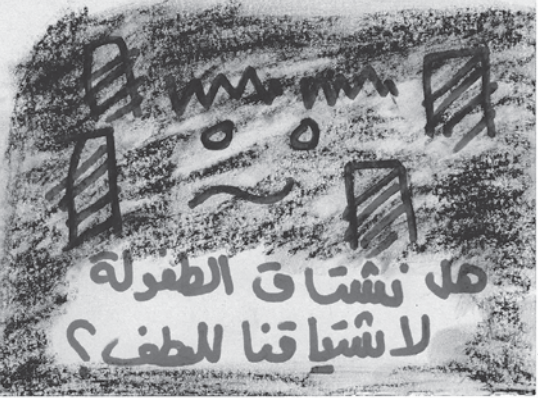 هل نشتاق الطفولة
لاشتياقنا للطف؟